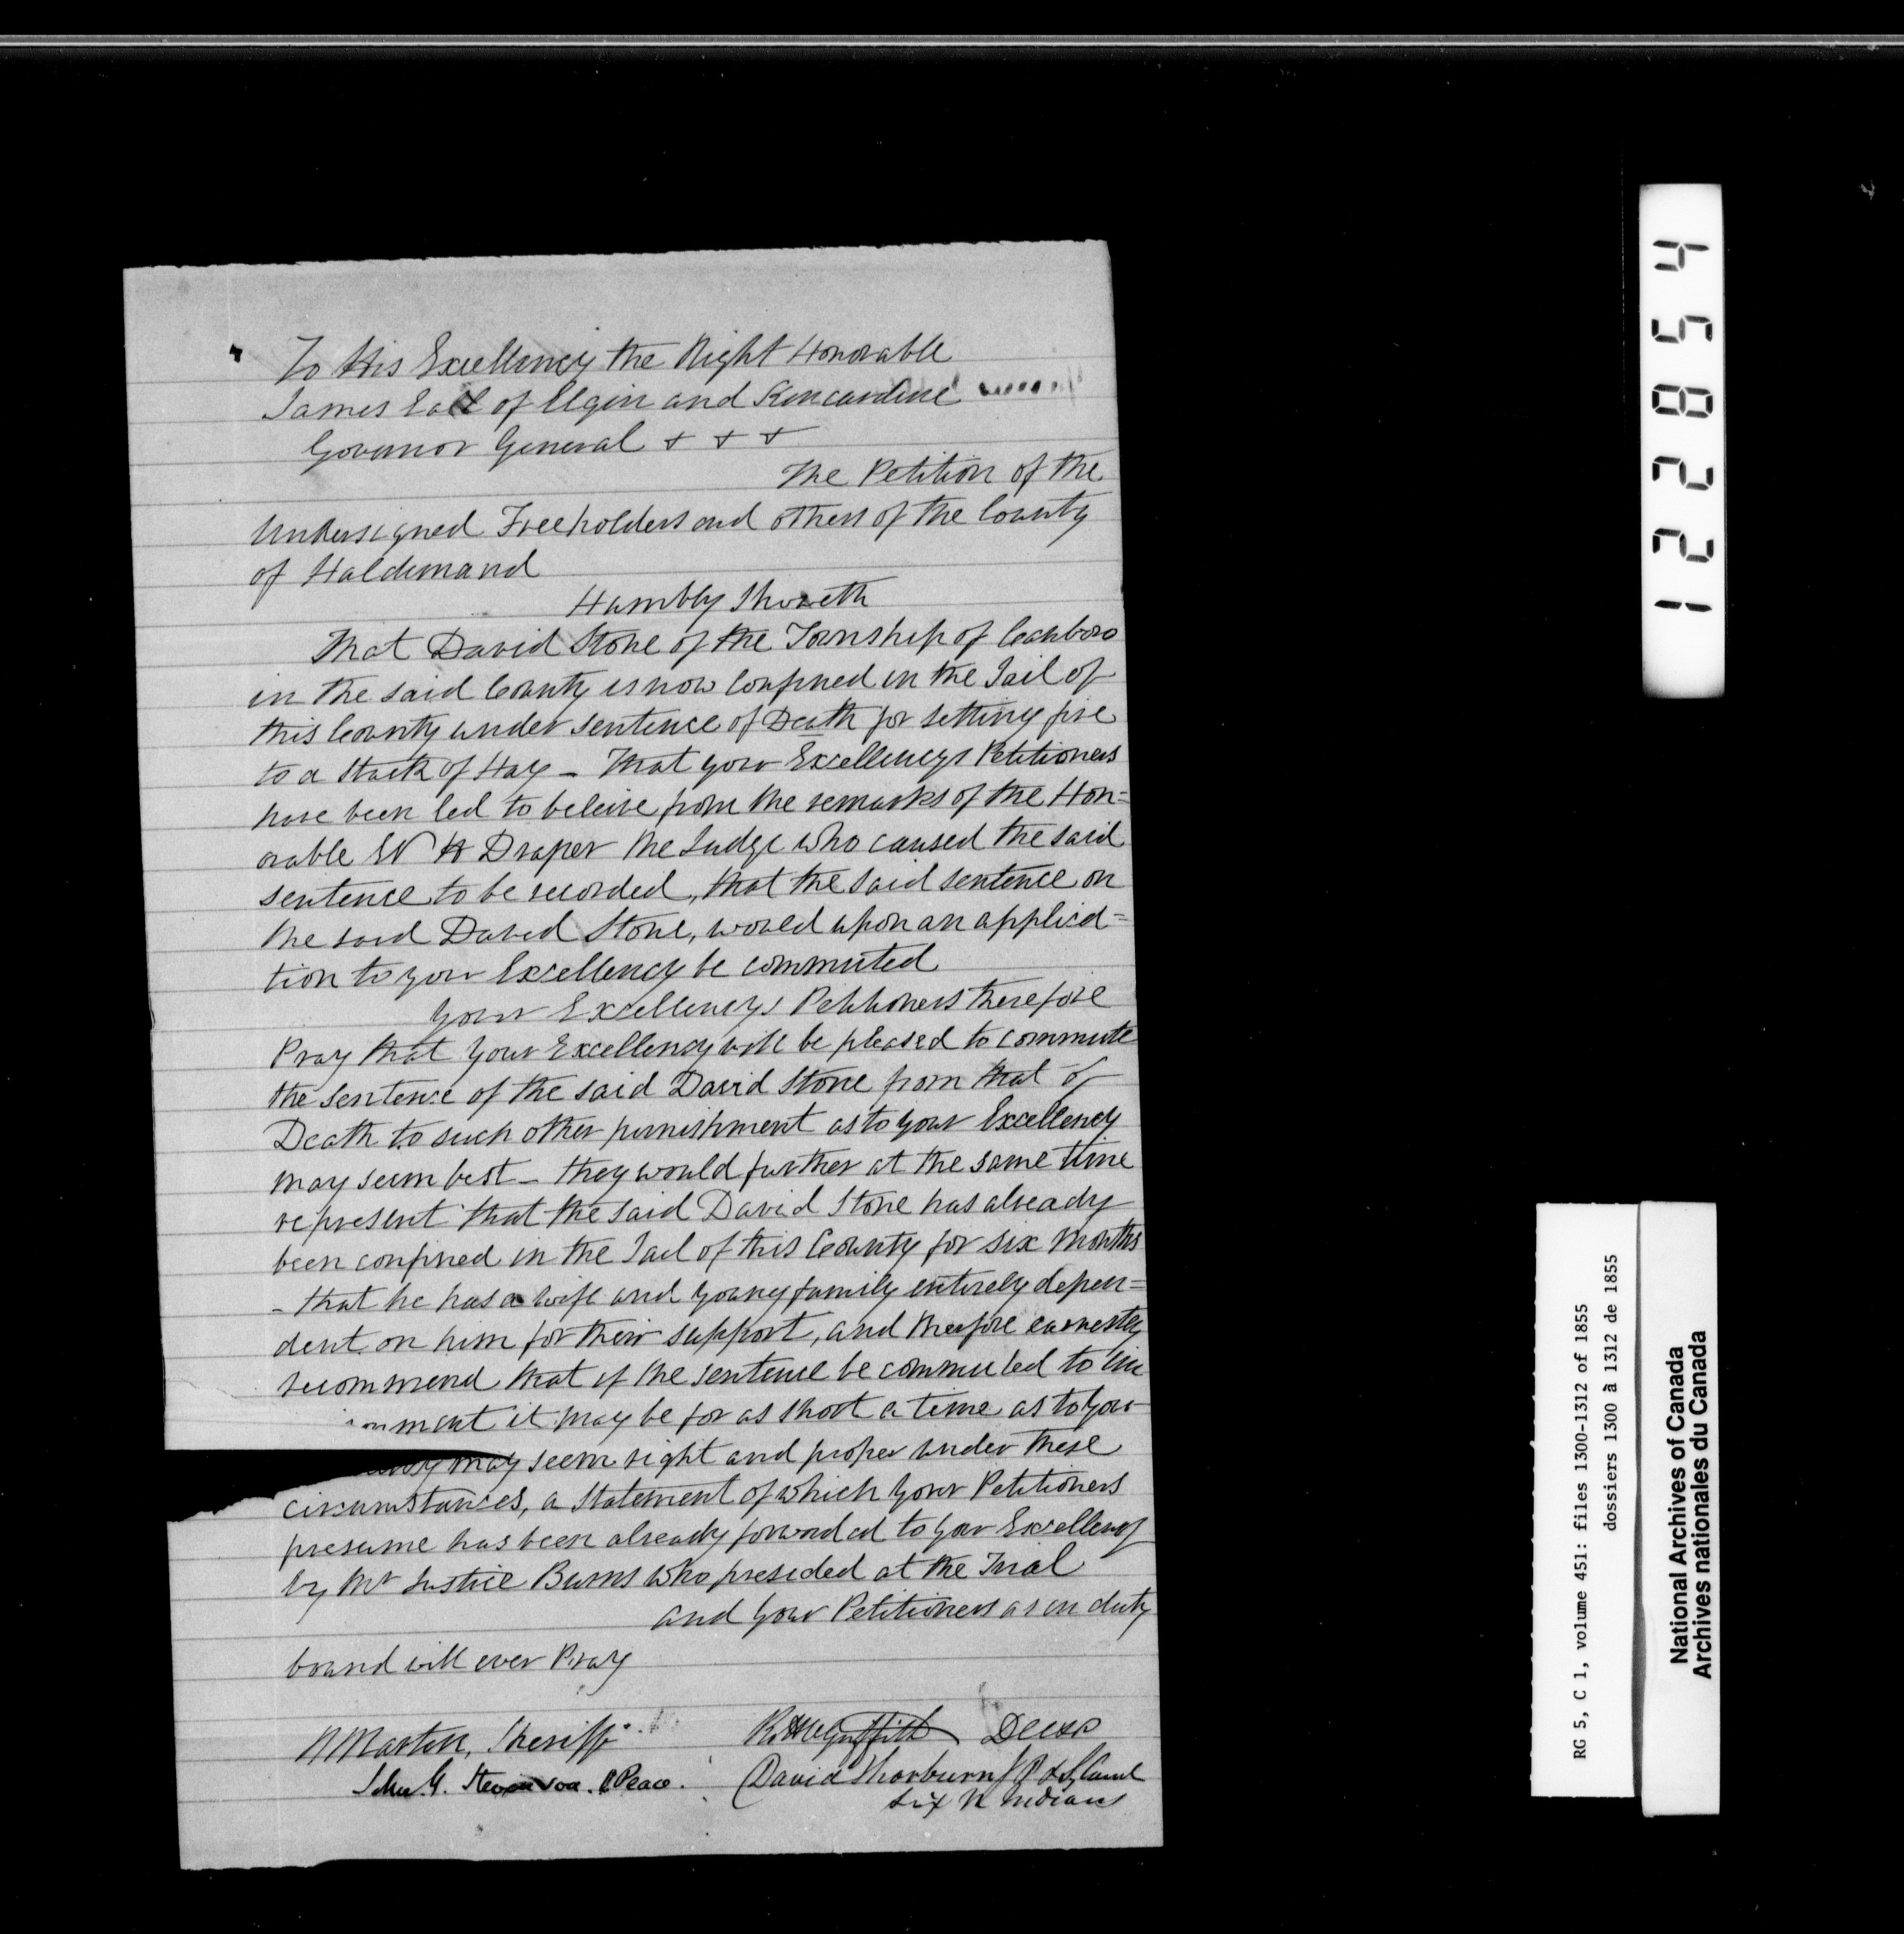 To His Excellency the Right Honorable
James Earl of Elgin and Kincardine
Governor General + + +
The Petition of the
Undersigned Freeholders and others of the County
of Haldimand
Humbly Sheweth
That David Stone of the Township of Canboro
in the said County is now confined in the Jail of
this County under sentence of Death for setting fire
to a Stack of Hay - That your Excellencys Petitioners
have been led to beleive from the remarks of the Hon=
orable W H Draper the Judge who caused the said
sentence to be recorded, that the said sentence on
the said David Stone, would upon an applica=
tion to your Excellency be commuted
Your Excellencys Petitioners therefore
Pray that Your Excellency will be pleased to commute
the sentence of the said David Stone from that of
Death to such other punishment as to your Excellency
may seem best - they would further at the same time
represent that the said David Stone has already
been confined in the Jail of this County for six months
- that he has a wife and young family entirely depen=
dent on him for their support, and therefore earnestly
recommend that if the sentence be commuted to im
onment it may be for as short a time as to your
may seem right and proper under these
circumstances, a statement of which Your Petitioners
presume has been already forwarded to your Excellency
by Mr Justice Burns who presided at the Trial
and Your Petitioners as in duty
bound will ever Pray
Martin, Sheriff
David Thorburn J P
Six N Indians
122854
RG 5, C 1, volume 451: files 1300-1312 of 1855
dossiers 1300 à 1312 de 1855
National Archives of Canada
Archives nationales du Canada